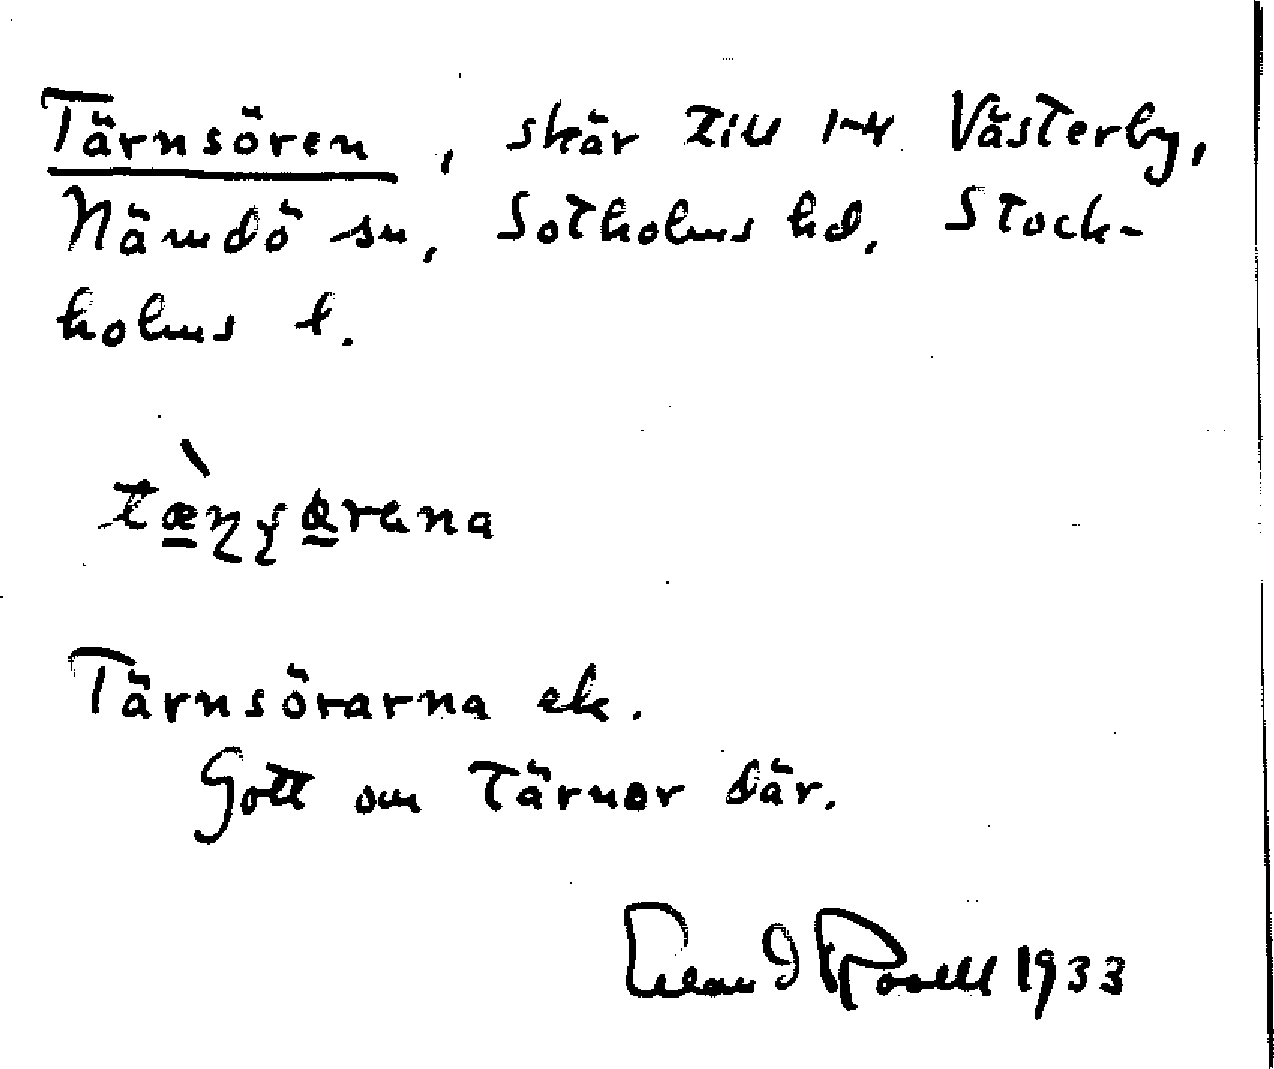 Tärnsören, skär till 1-4 Västerby,
Nämdö sn, Sotholms hd, Stock-
holms l.
Tärnsörarna ek.
Gott om Tärnor där.
1933